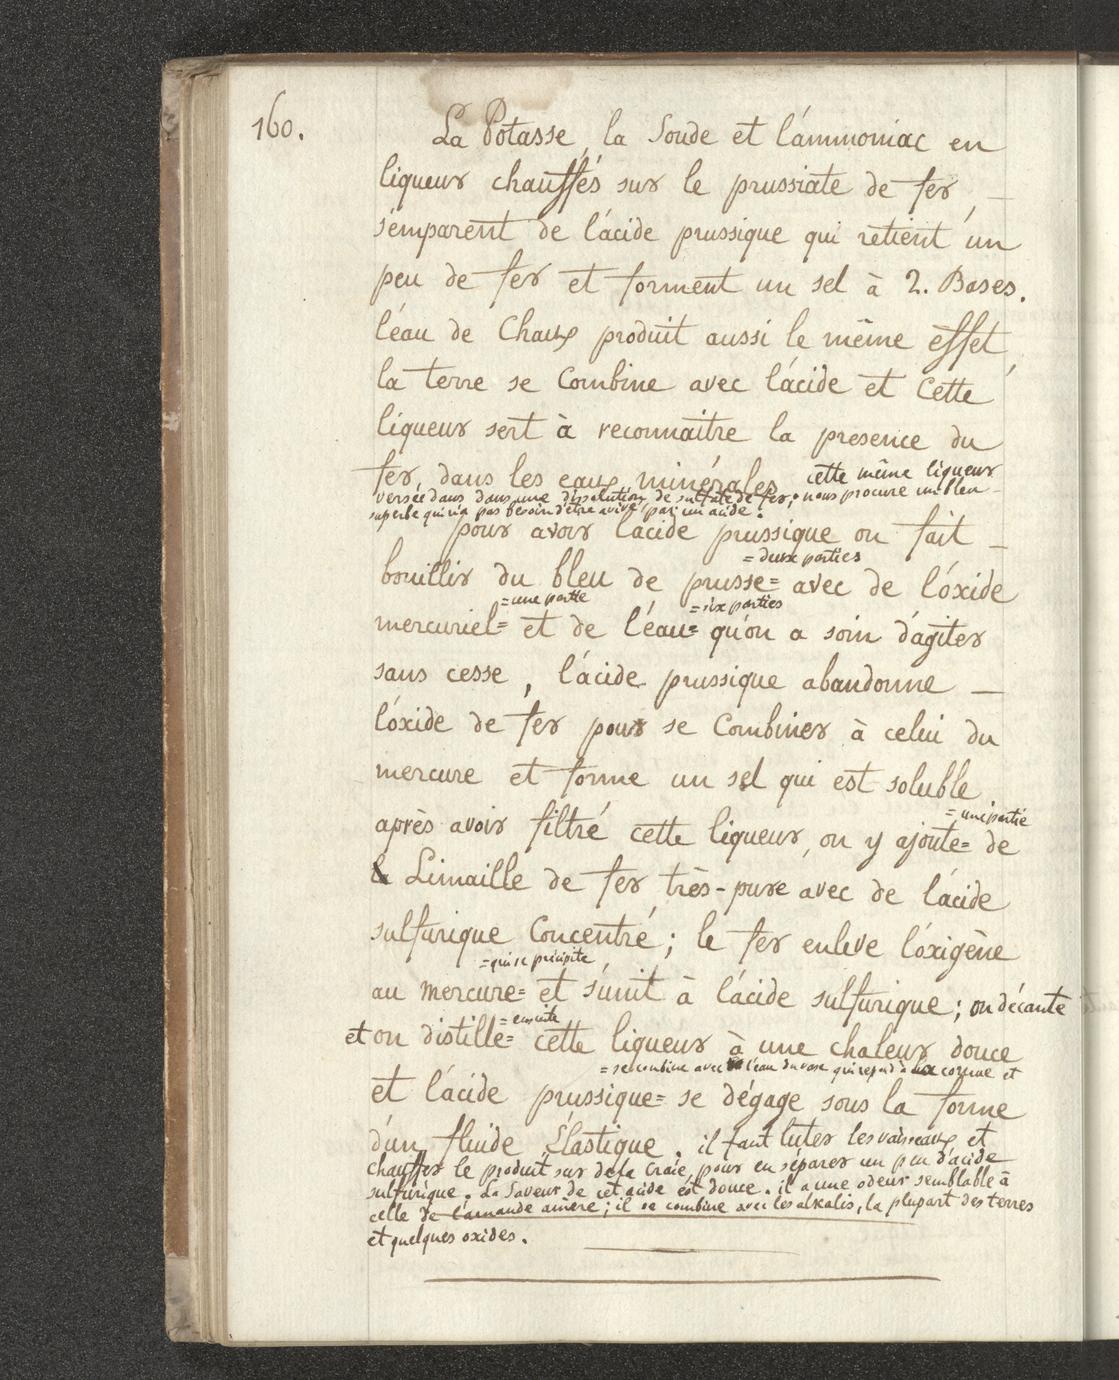 160.
La Potasse, la Soude et l'ammoniac en
liqueur chauffés sur le prussiate de fer
s'emparent de l'acide prussique qui retient un
peu de fer et forment un sel à 2. Bases.
l'éau de Chaux produit aussi le même éffet,
la terre se Combine avec l'acide et Cette
liqueur sert à reconnaitre la presence du
fer, dans les eaux minérales, cette même liqueur
versée dans dans une dissolution de sulfate de fer, nous procure un bleu
superbe qui n'a pas besoin d'être avivé par un acide.
pour avoir l'acide prussique on fait
= deux parties
bouillir du bleu de prusse= avec de l'óxide
= une partie = six parties
mercuriel= et de l'éau= qu'on a soin d'agiter
sans cesse, l'ácide prussique abandonne
l'óxide de fer pour se Combiner à celui du
mercure et forme un sel qui est soluble
= une partie
après avoir filtré cette liqueur, on y ajoute= de
Limaille de fer très-pure avec de l'ácide
sulfurique Concentré; le fer enleve l'óxigène
= qui se précipite
au mercure= et s'unit à l'ácide sulfurique; on décante
= ensuite
et on distille= cette liqueur à une chaleur douce
= se combine avec l'éau du vase qui repond à la cornue et
et l'ácide prussique= se dégage sous la forme
d'un fluide Élastique. il faut luter les vaisseaux et
chauffer le produit sur de la Craie, pour en séparer un peu d'acide
sulfurique. La Saveur de cet acide est douce. il a une odeur semblable à
celle de l'amande amère; il se combine avec les alkalis, la plupart des terres
et quelques oxides.